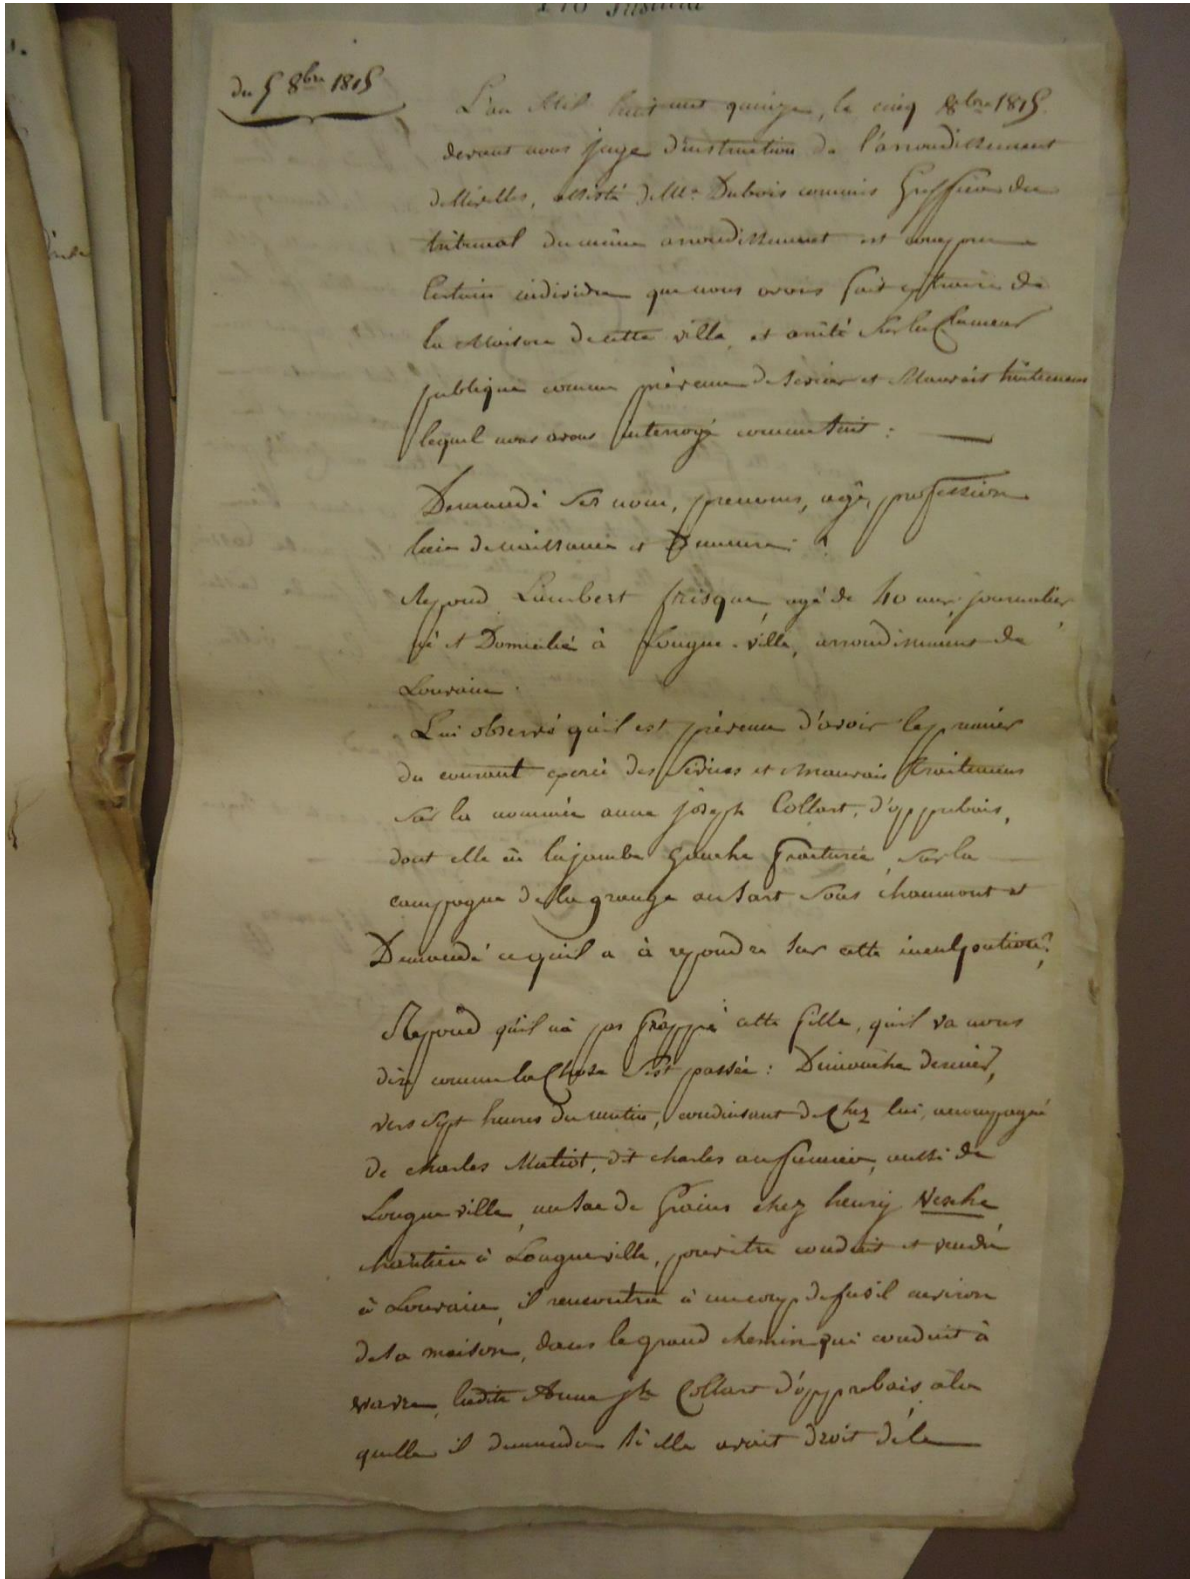 du 5 8bre 1815
L'an Mil huit cent quinze, le cinq 8bre 1815.
devant nous juge d'instruction de l'arrondissement
de Nivelles, assisté de Mr. Dubois commis Greffier du
tribunal du même arrondissement est comparu
Certain individu que nous avons fait extraire de
la Maison de cette ville, et arrêté sur la Clameur
publique comme prévenu de sévices et Mauvais traitemens
lequel nous avons interrogé comme suit :
Demandé ses nom, prenoms, age, profession
lieu de naissance et Demeure ?
Repond Lambert frisque, agé de 40 ans, journalier,
né et Domicilié à Longue-ville, arrondissement de
Louvain.
Lui observé qu'il est prévenu d'avoir le premier
du courant exercé des sévices et mauvais traitemens
sur la nommée anne joseph Collart, d'opprebais,
dont elle eu la jambe gauche fracturée, sur la
campagne de la grange au sart sous chaumont et
Demandé ce qu'il a à repondre sur cette inculpation?
Repond qu'il n'a pas frappé cette fille, qu'il va nous
dire comme la Chose s'est passée : Dimanche dernier,
vers sept heures du matin, conduisant de chez lui, accompagné
de charles Matiot, dit charles au fumier, aussi de
Longueville, un sac de Grains chez henry
à Longueville, pour être conduit et vendu
à Louvain, il rencontra à un coup de fusil environ
de sa maison, dans le grand chemin qui conduit à
wavre, ladite Anne jh Collart d'opprebais, à la
quelle il demanda si elle avait droit de